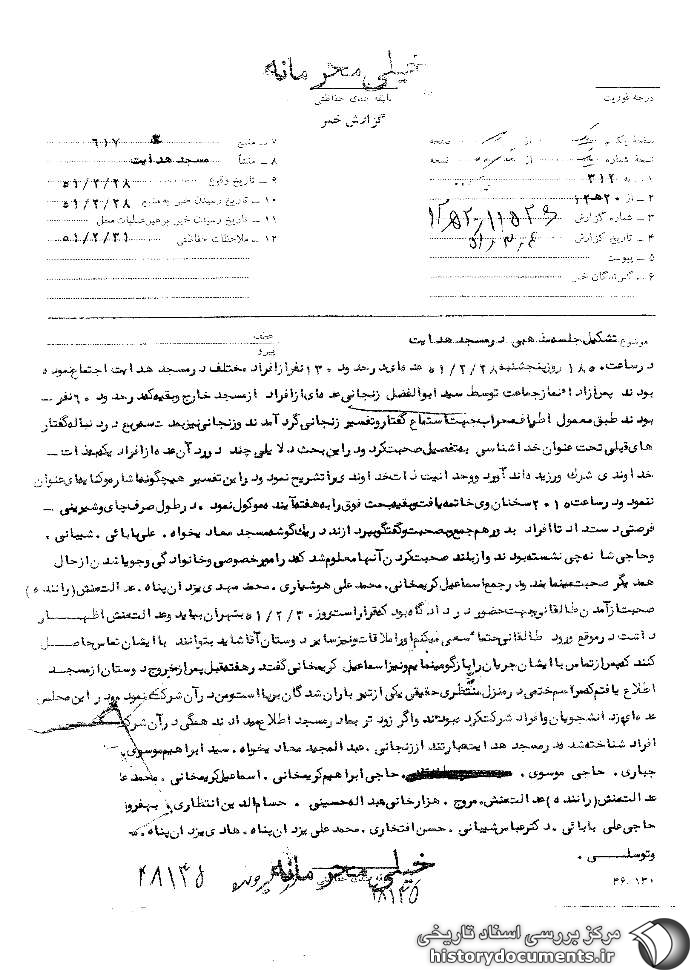 خیلی محرمانه
طبقه بندی حفاظتی
درجه فوریت
گزارش خبر
۷ ـ منبع ۶۱۷
۸ ـ منشأ مسجد هدایت
۹ ـ تاریخ وقوع ۵۱/۲/۲۸
۱۰ ـ تاریخ رسیدن خبر به منبع ۵۱/۲/۲۸
۱۱ ـ تاریخ رسیدن خبر به رهبر عملیات محل
۱۲ ـ ملاحظات حفاظتی ۵۱/۲/۳۱
صفحه یک از صفحه
نسخه شماره از نسخه
۱ ـ به ۳۱۲
۲ ـ از ۲۰ ه‍ ۱۲
۳ ـ شماره گزارش
۴ ـ تاریخ گزارش
۵ ـ پیوست
۶ ـ گیرندگان خبر
موضوع تشکیل جلسه مذهبی در مسجد هدایت
عطف
پیرو
در ساعت ۱۸۵۰ روز پنجشنبه ۵۱/۲/۲۸ عده‌ای در حدود ۱۳۰ نفر از افراد مختلف در مسجد هدایت اجتماع نموده
بودند پس از اداء نماز جماعت توسط سید ابوالفضل زنجانی عده‌ای از افراد از مسجد خارج و بقیه که در حدود ۶۰ نفر ـ
بودند طبق معمول اطراف محراب جهت استماع گفتار و تفسیر زنجانی گرد آمدند و زنجانی نیز بحث سریع در دنباله گفتار
های قبلی تحت عنوان خدا شناسی به تفصیل صحبت کرد و در این بحث دلایلی چند در رد آن عده از افراد یکه بذات ـ
خداوندی شرک ورزیده‌اند آورد و وحدانیت ذات خداوندی را تشریح نمود و در این تفسیر هیچگونه اشاره و کنایه‌ای عنوان
ننمود و در ساعت ۲۰۱۵ سخنان وی خاتمه یافت و بقیه بحث فوق را به هفته آینده موکول نمود . در طول صرف چای و شیرینی ـ
فرصتی دست داد تا افراد بدور هم جمع و بصحبت و گفتگو بپردازند در یک گوشه مسجد معادیخواه . علی بابائی . شیبانی .
و حاجی شانه‌چی نشسته بودند و از بلند صحبت کردن آنها معلوم شد که در امور خصوصی و خانوادگی و جویا شدن از حال
همدیگر صحبت مینمایند و در جمع اسماعیل کریمخانی . محمد علی هوشیاری . محمد مهدی یزدان پناه . عدالت منش (راننده)
صحبت از آمدن طالقانی جهت حضور در دادگاه بود که قرار است روز ۵۱/۲/۳۰ بتهران بیاید و عدالت منش اظهار
داشت در موقع ورود طالقانی حتما سعی میکنم او را ملاقات و نیز سایر دوستان آقا شاید بتوانند با ایشان تماس حاصل
کنند که پس از تماس با ایشان جریان را بازگو مینمایم و نیز اسماعیل کریمخانی گفت در هفته قبل پس از خروج دوستان از مسجد
اطلاع یافتم که مراسم ختمی در منزل منتظری حقیقی یکی از تیر باران شدگان برپا است و من در آن شرکت نمودم و در این مجلس
عده‌ای زد انشجویان و افراد شرکت کرده بودند و اگر زود تر بعاد ر مسجد اطلاع میدادند همگی در آن شرکت
افراد شناخته شده در مسجد هدایت عبارتند از زنجانی . عبدالمجید معادیخواه . سید ابراهیم موسوی
جباری . حاجی موسوی . حاجی ابراهیم کریمخانی . اسماعیل کریمخانی . محمد
عدالت منش (راننده) عدالت منش . مروج . هزارخانی عبداله حسینی . حسام الدین انتظاری .
حاجی علی بابائی . دکتر عباس شیبانی . حسن افتخاری . محمد علی یزدان پناه . هادی یزدان پناه .
و توسلی .
خیلی محرمانه
۴۸۱۳۵
۴۸۱۳۵
۴۶ـ۱۳۰
مرکز بررسی اسناد تاریخی
historydocuments.ir